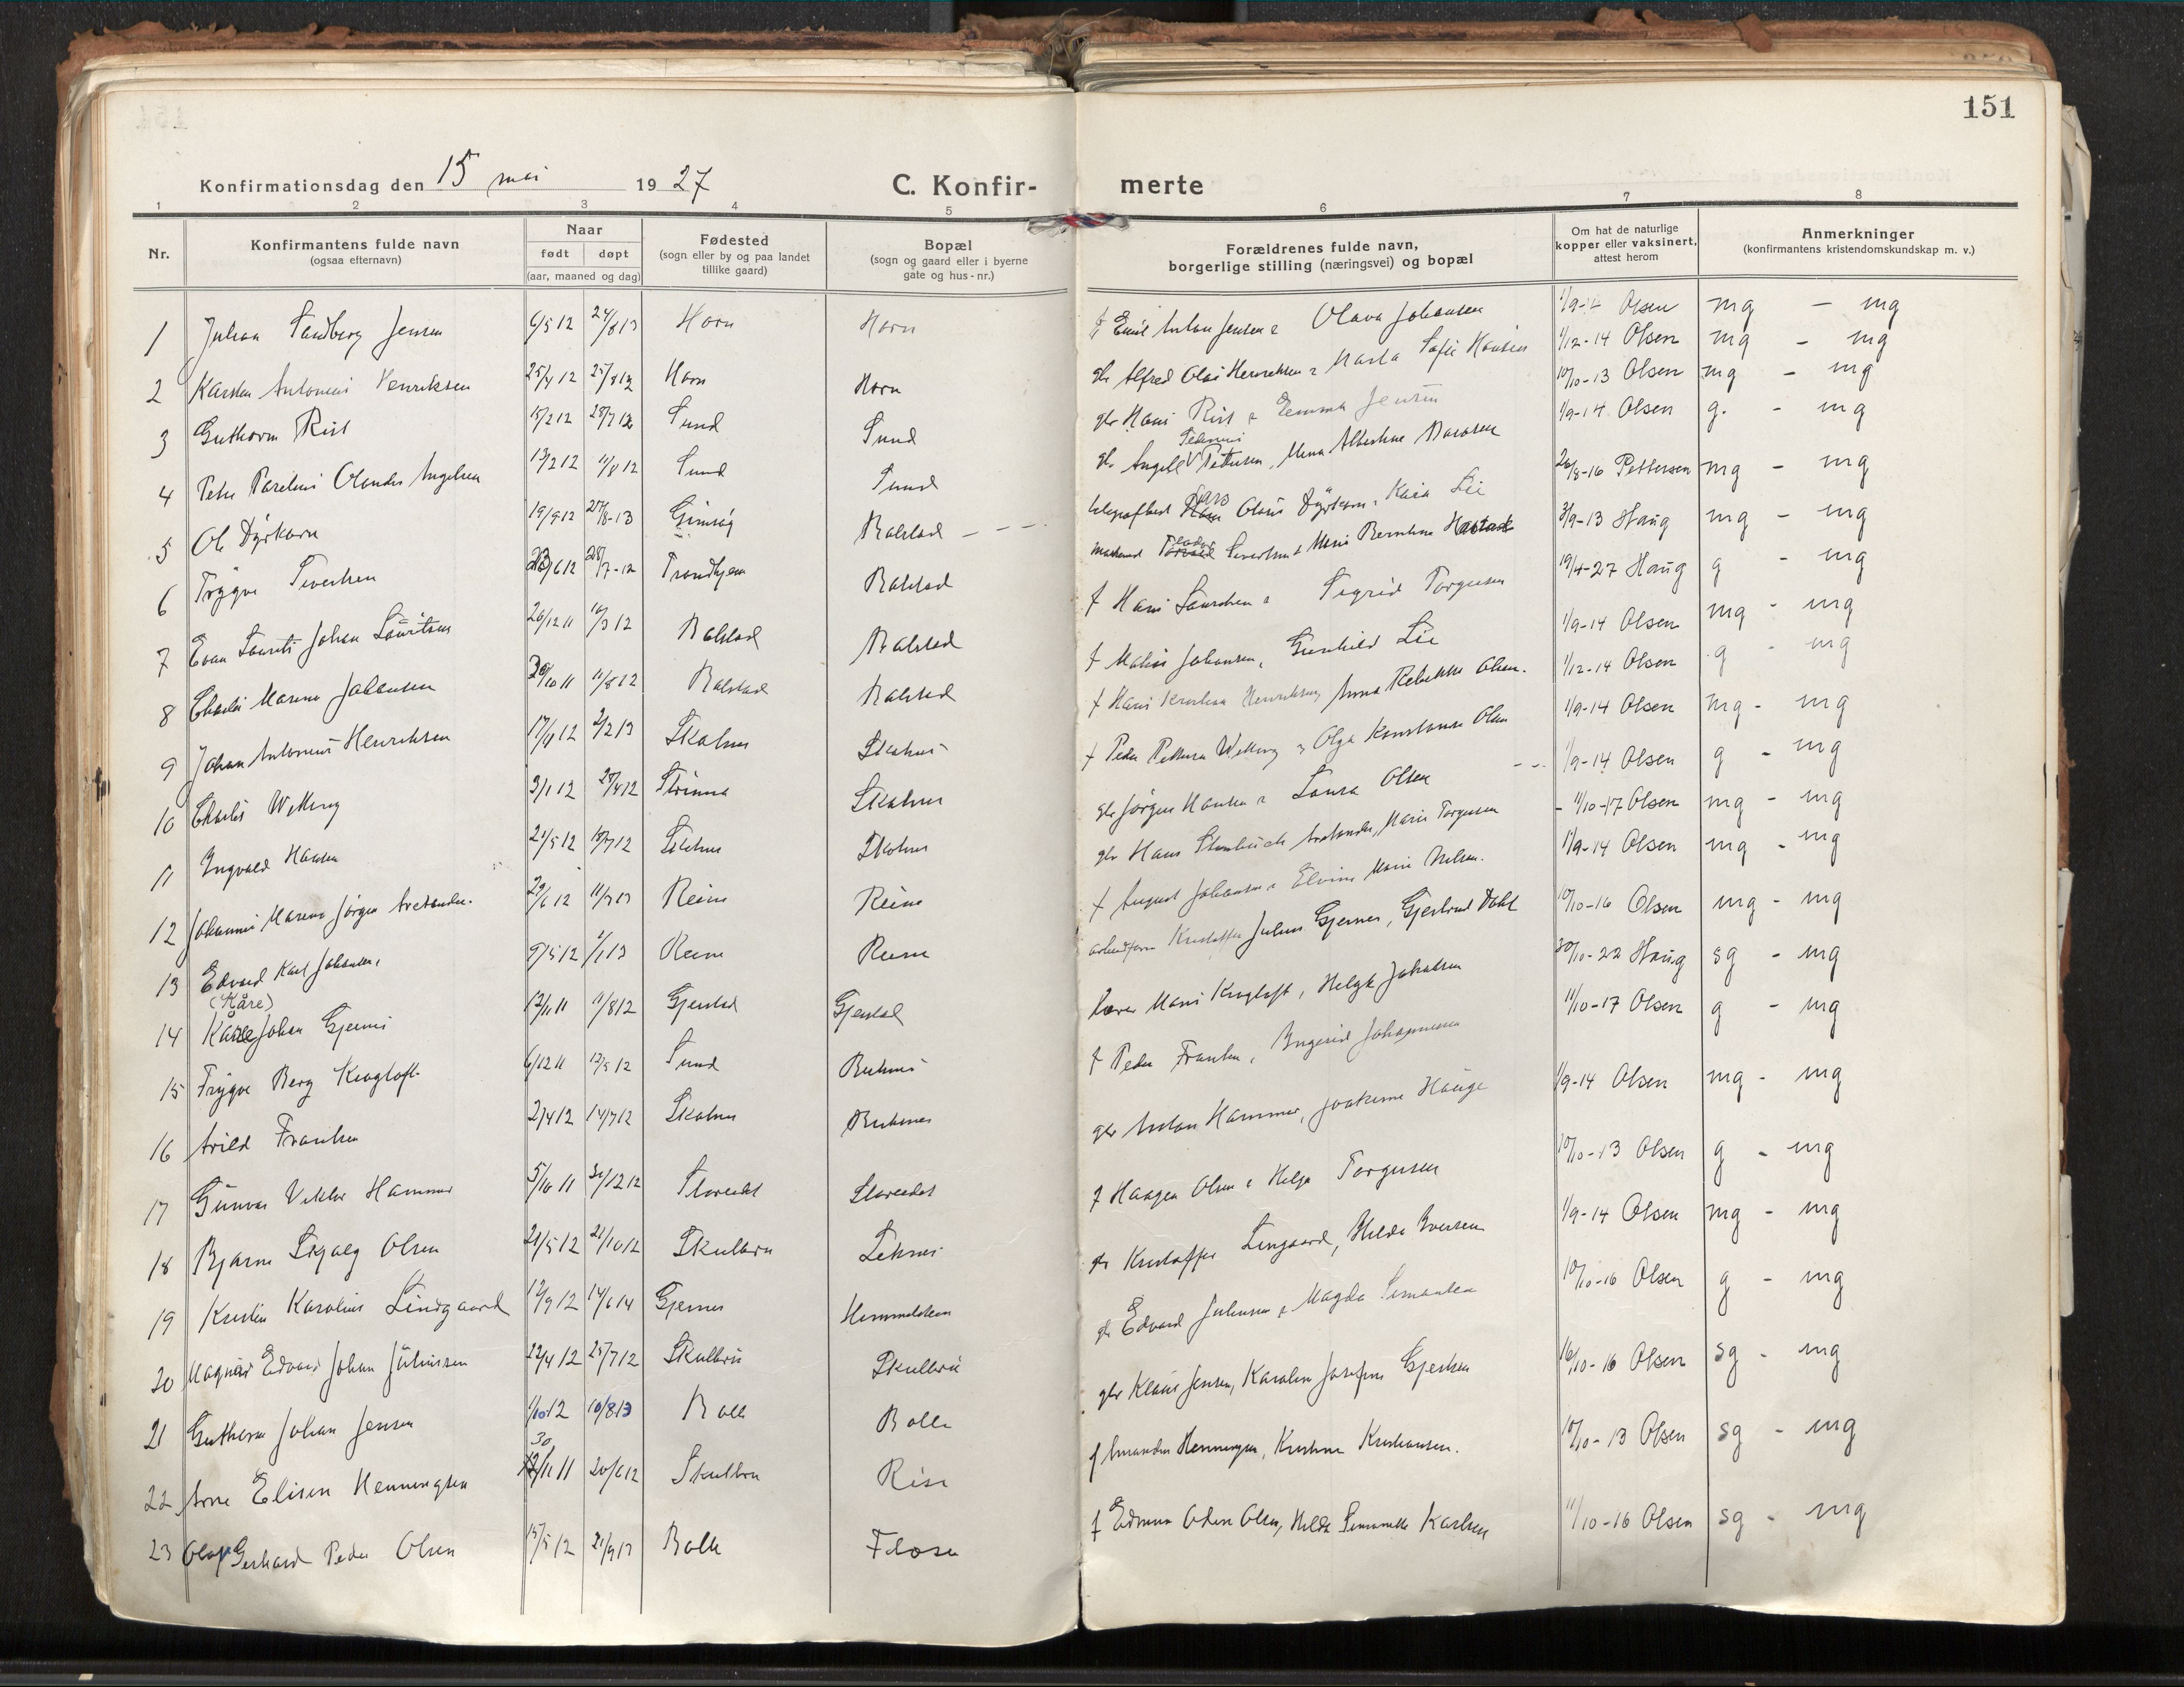 151
Konfirmationsdag den 15 mai 1927 C. Konfir- merte
1 2 3 4 5 6 7 8
Nr.
Konfirmantens fulde navn
(ogsaa efternavn)
Naar
født døpt
(aar, maaned og dag)
Fødested
(sogn eller by og paa landet
tillike gaard)
Bopæl
(sogn og gaard eller i byerne
gate og hus-nr.)
Forældrenes fulde navn,
borgerlige stilling (næringsvei) og bopæl
Om hat de naturlige
kopper eller vaksinert,
attest herom
Anmerkninger
(konfirmantens kristendomskundskap m. v.)
1 Johan Sandberg Jensen 6/5 12 24/8 13 Horn Horn f Emil Anton Jensen & Olava Johansen 1/9-14 Olsen mg - mg
2 Karsten Antonius Henriksen 25/4 12 25/8 12 Horn Horn gbr Alfred Olai Henriksen & Marta Sofie Hansen 1/12-14 Olsen mg - mg
3 Guthorm Rist 15/2 12 28/7 12 Sund Sund gbr Hans Rist & Emma Jensen 10/10-13 Olsen mg - mg
4 Peter Parelius Olander Angelsen 13/2 12 11/8 12 Sund Sund gbr Angell Pettersen, Mena Albertine 1/9-14 Olsen g. - mg
5 Ole Dyrkorn 19/9 12 27/8-13 Gimsøy Balstad - - telegrafbest Lars Olaus Dyrkorn & Kaia Lie 26/8-16 Pettersen mg - mg
6 Trygve Sivertsen 23/6 12 28/7-12 Trondhjem Balstad Sivertsen & Marie Bernhine 3/9-13 Haug mg - mg
7 Evan Laurits Johan Lauritsen 26/12 11 10/3 12 Balstad Balstad f Hans Lauritsen & Sigrid Torgersen 19/4-27 Haug g - mg
8 Charles Marenius Johansen 30/10 11 11/8 12 Balstad Balstad f Johansen, Gunhild Lie 1/9-14 Olsen mg - mg
9 Johan Antonius Henriksen 17/4 12 2/2 13 Skotnes Skotnes f Hans Henriksen, Anna Rebekka Olsen. 1/12-14 Olsen g - mg
10 Charles 3/1 12 28/4 12 Skotnes f Peder Pettersen & Olga Konstanse Olsen 1/9-14 Olsen mg - mg
11 Ingvald Hansen 21/5 12 Skotnes Skotnes gbr Jørgen Hansen & Laura Olsen - - 1/9-14 Olsen g - mg
12 Johannes Marenius Jørgen 29/6 12 11/3 13 Reine Reine gbr Hans, Marie Torgersen - 11/10-17 Olsen mg - mg
13 Edvard Karl Johansen 9/5 12 1/1 13 Reine Reine f August Johansen & Elvine Marie Nilsen. 1/9-14 Olsen mg - mg
(Kåre)
14 Kåre Johan Gjernes 12/11 11 11/8 12 Gjerstad Gjerstad Kristoffer Julius Gjernes, Gjertrud Dahl 10/10-16 Olsen mg - mg
15 Trygve Berg Krogtoft 6/12 11 12/5 12 Sund Buknes lærer Krogtoft, Helga Jakobsen 30/10-22 Haug sg - mg
16 Arild Frantsen 2/4 12 14/7 12 Skotnes Buknes f Peder Frantsen, Ingerid Johannessen 11/10-17 Olsen g - mg
17 Gunvar Viktor Hammer 5/10 11 31/12 12 Storeidet Storeidet gbr Anton Hammer, Joakime Hauge 1/9-14 Olsen mg - mg
18 Bjarne Olsen 21/5 12 21/10 12 Skulbru Leknes f Haagen Olsen & Helga Torgersen 10/10-13 Olsen g - mg
19 Kristen Karolius Lindgaard 12/9 12 14/6 14 Gjernes Himmelsteen gbr Kristoffer Lingaard, Hilda Iversen 1/9-14 Olsen mg - mg
20 Magnar Edvard Johan Juliussen 22/4 12 25/7 12 Skulbru Skulbru gbr Edvard Juliussen & Magda Simonsen 10/10-16 Olsen g - mg
21 Guthorm Johan Jensen 1/10 12 10/8 13 Bolle Bolle gbr Klaus Jensen, Karoline Josefine Gjertsen 16/10-16 Olsen sg - mg
30
22 Arne Elisen Henningsen /11 11 20/6 12 Skulbru Rise f Henningsen, Kristine Kristiansen. 10/10-13 Olsen sg - mg
23 Olaf Gerhard Peder Olsen 15/5 12 21/9 13 Bolle f Edmun Odin Olsen, Hilda Karlsen 11/10-16 Olsen sg - mg